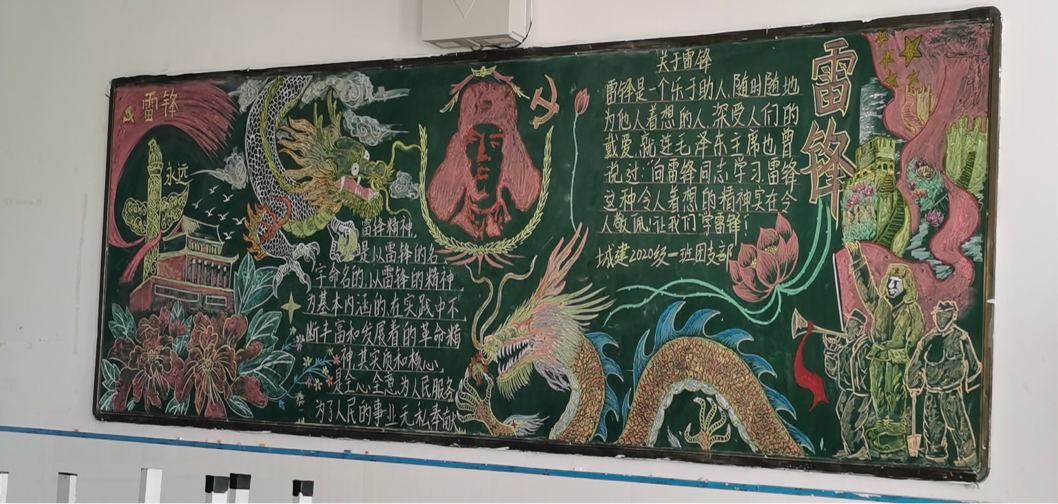 雷锋
永远
雷锋精神,
是以雷锋的名
字命名的,以雷锋的精神
为基本内涵的,在实践中不
断丰富和发展着的革命精
神,其实质和核心,
是全心全意为人民服务,
为了人民的事业无私奉献
关于雷锋
雷锋是一个乐于助人,随时随地
为他人着想的人,深受人们的
戴爱,就连毛泽东主席也曾
说过:向雷锋同志学习雷锋
这种令人着想的精神实在令
人敬佩,让我们学雷锋!
城建2020级一班团支部
雷锋